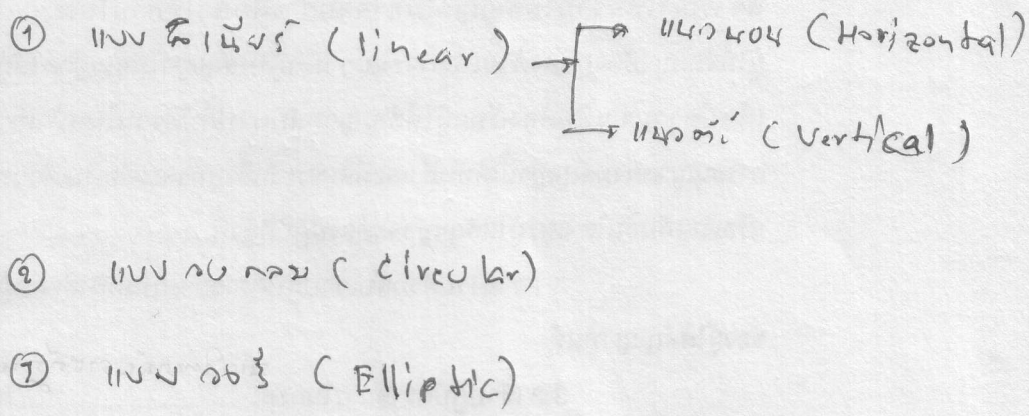 ① แบบลิเนียร์ (linear) → แนวนอน (Horizontal)
→ แนวตั้ง (Vertical)
② แบบ วงกลม (Circular)
③ แบบ วงรี (Elliptic)